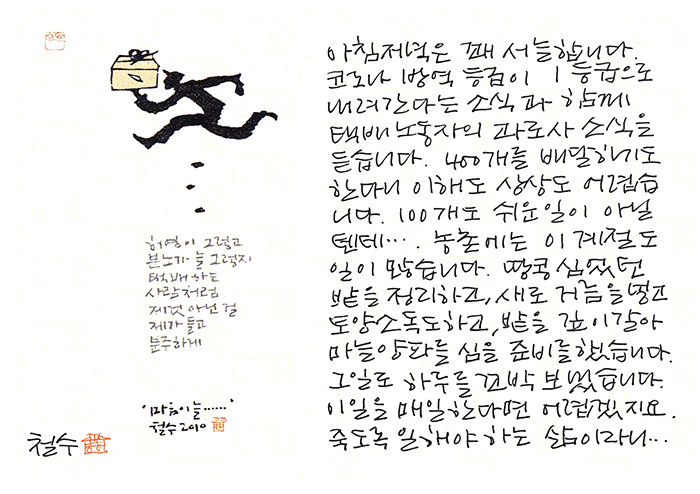 허영이 그렇고
분노가 늘 그렇지
택배 하는
사람처럼
제것 아닌 걸
제가 들고
분주하게
'마음이 늘……'
철수 2010
철수
아침저녁은 꽤 서늘합니다.
코로나 방역 등급이 1 등급으로
내려간다는 소식과 함께
택배노동자의 과로사 소식을
듣습니다. 400개를 배달하기도
한다니 이해도 상상도 어렵습
니다. 100개도 쉬운일이 아닐
텐데…. 농촌에는 이 계절도
일이 많습니다. 땅콩 심었던
밭을 정리하고, 새로 거름을 펴고
토양소독도하고, 밭을 깊이갈아
마늘양파를 심을 준비를했습니다.
그일로 하루를 꼬박 보냈습니다.
이일을 매일한다면 어렵겠지요.
죽도록 일해야 하는 삶이라니…